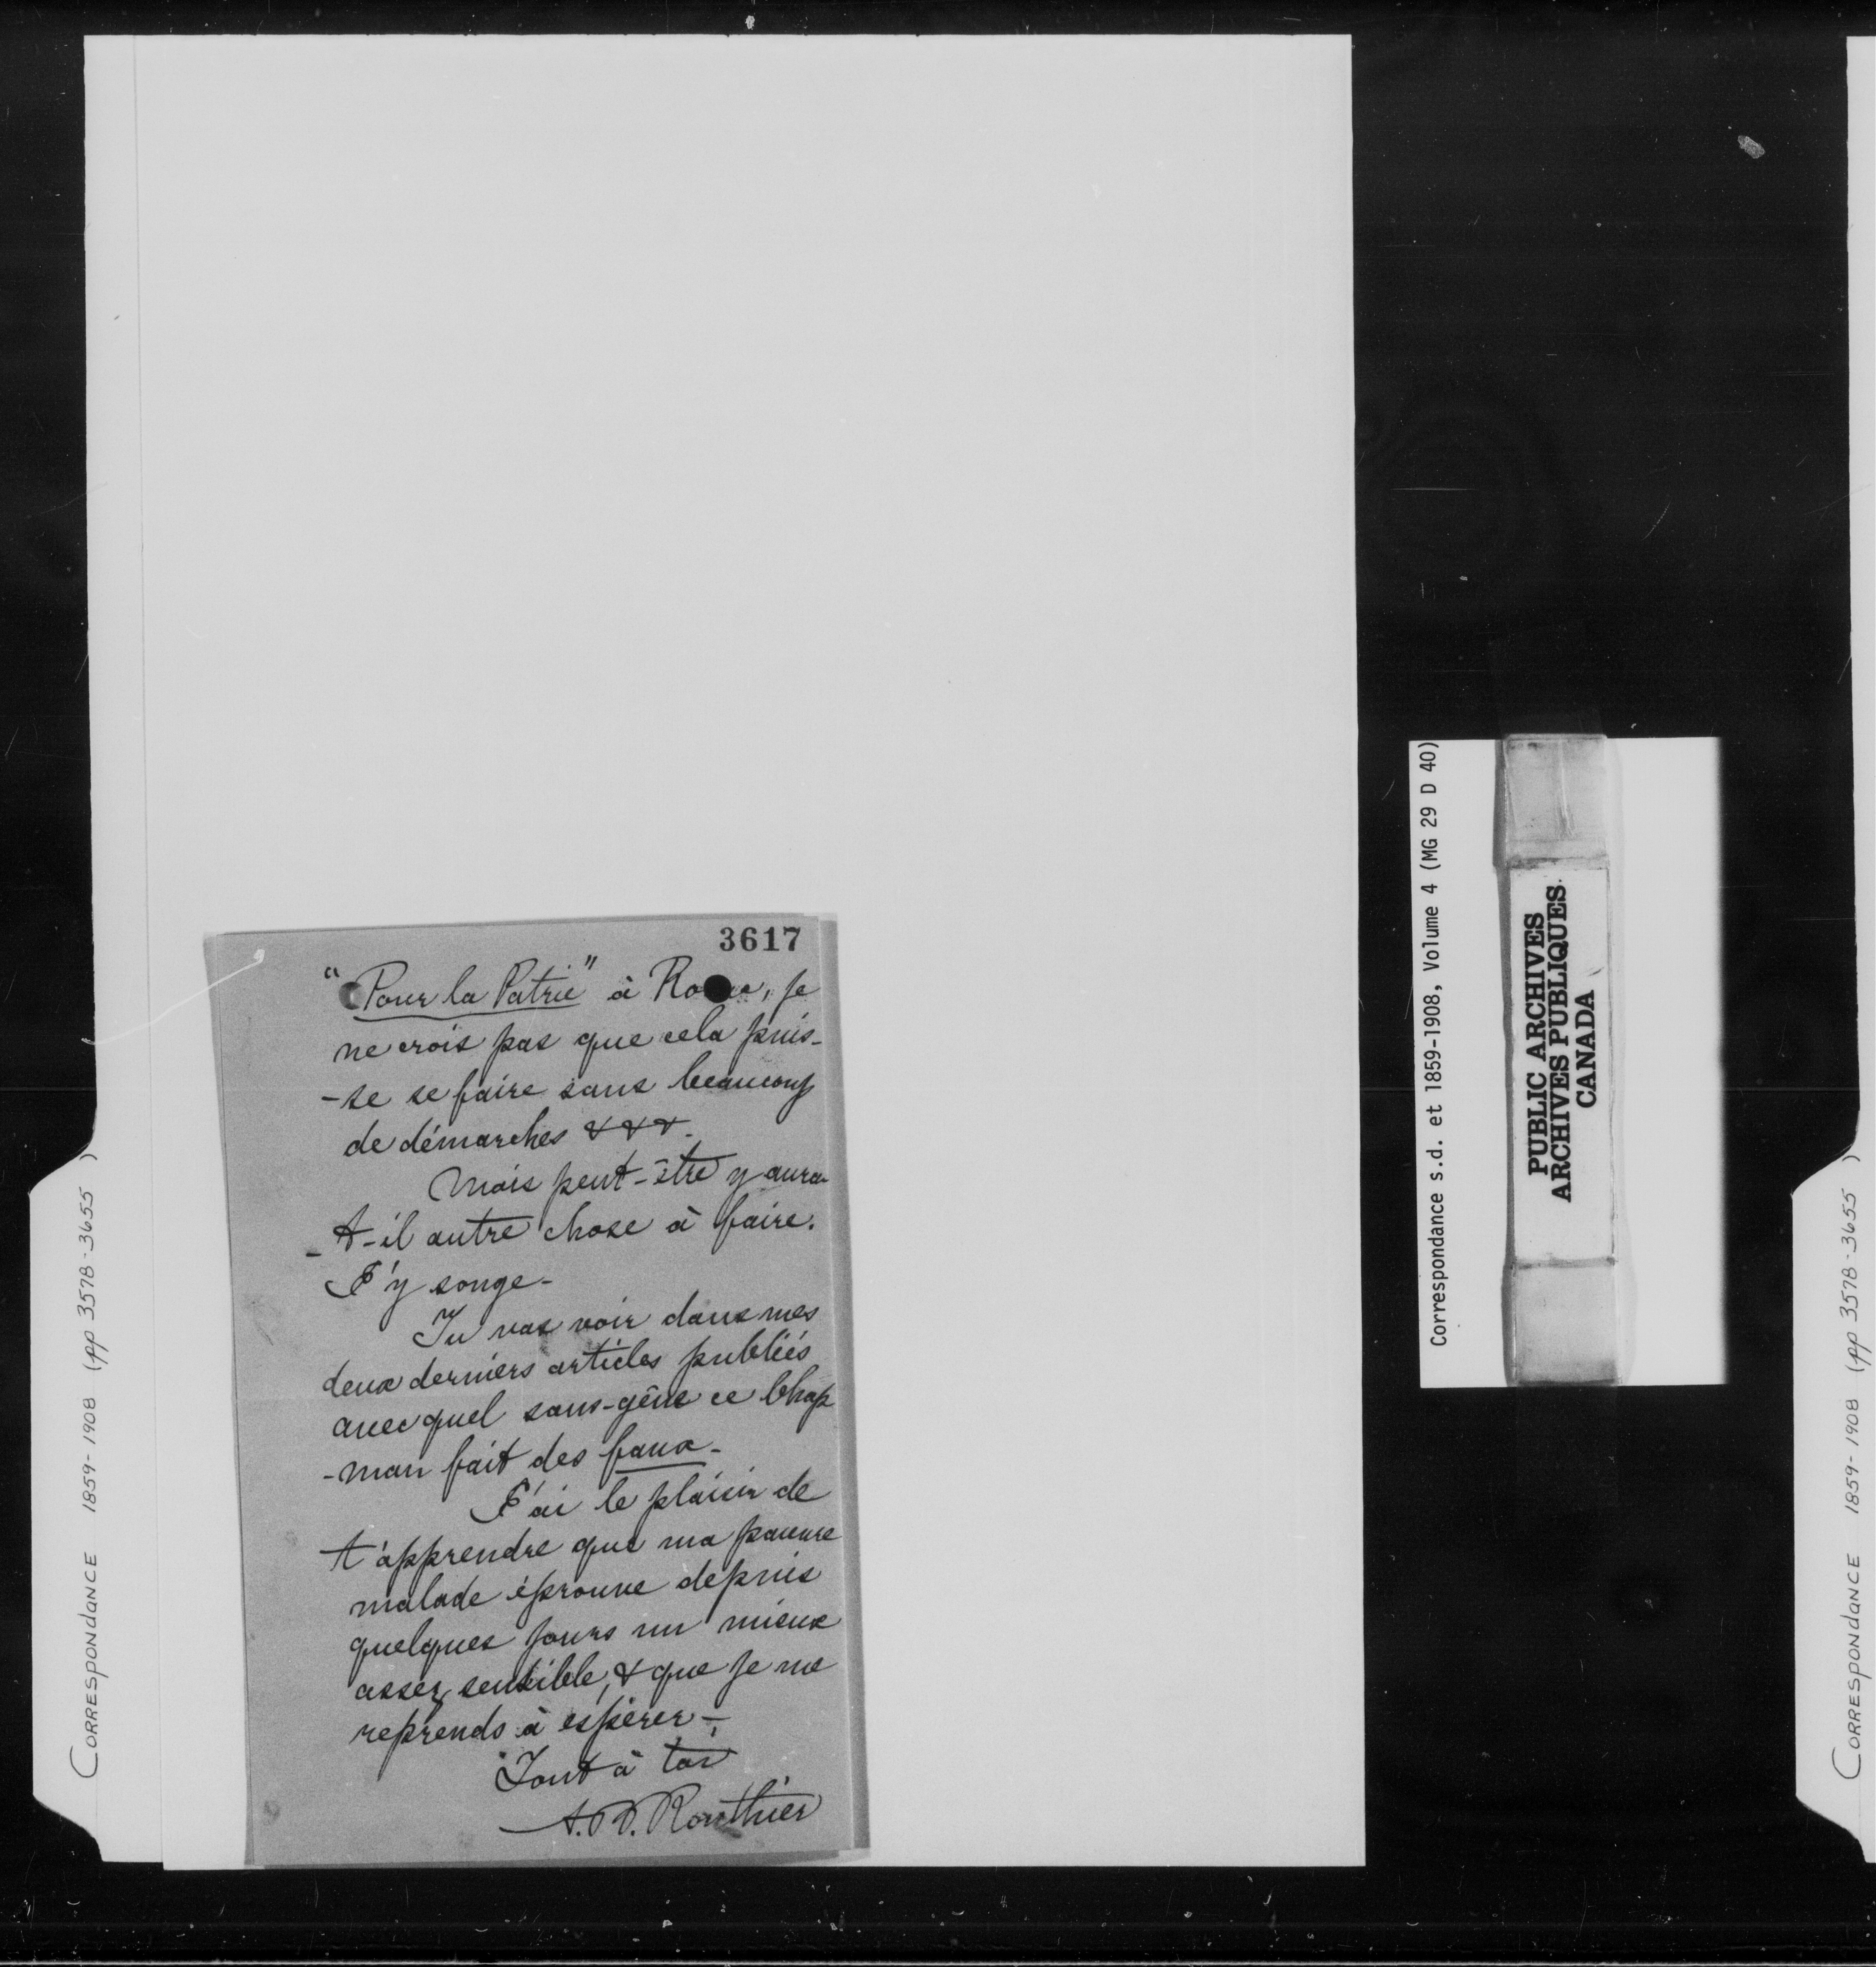 3617
"Pour la Patrie" à Rome, je
ne crois pas que cela puis-
-se se faire sans beaucoup
de démarches & & &.
Mais peut-être y aura-
-t-il autre chose à faire.
J'y songe-
Tu vas voir dans mes
deux derniers articles publiés
avec quel sans-gêne ce Chap
-man fait des faux-
J'ai le plaisir de
t'apprendre que ma pauvre
malade éprouve depuis
quelques jours un mieux
assez sensible, & que je me
reprends à espérer-
Tout à toi
A. B. Routhier
CORRESPONDANCE 1859-1908 (pp 3578-3655)
Correspondance s.d. et 1859-1908, Volume 4 (MG 29 D 40)
PUBLIC ARCHIVES
ARCHIVES PUBLIQUES
CANADA
CORRESPONDANCE 1859-1908 (pp 3578-3655)